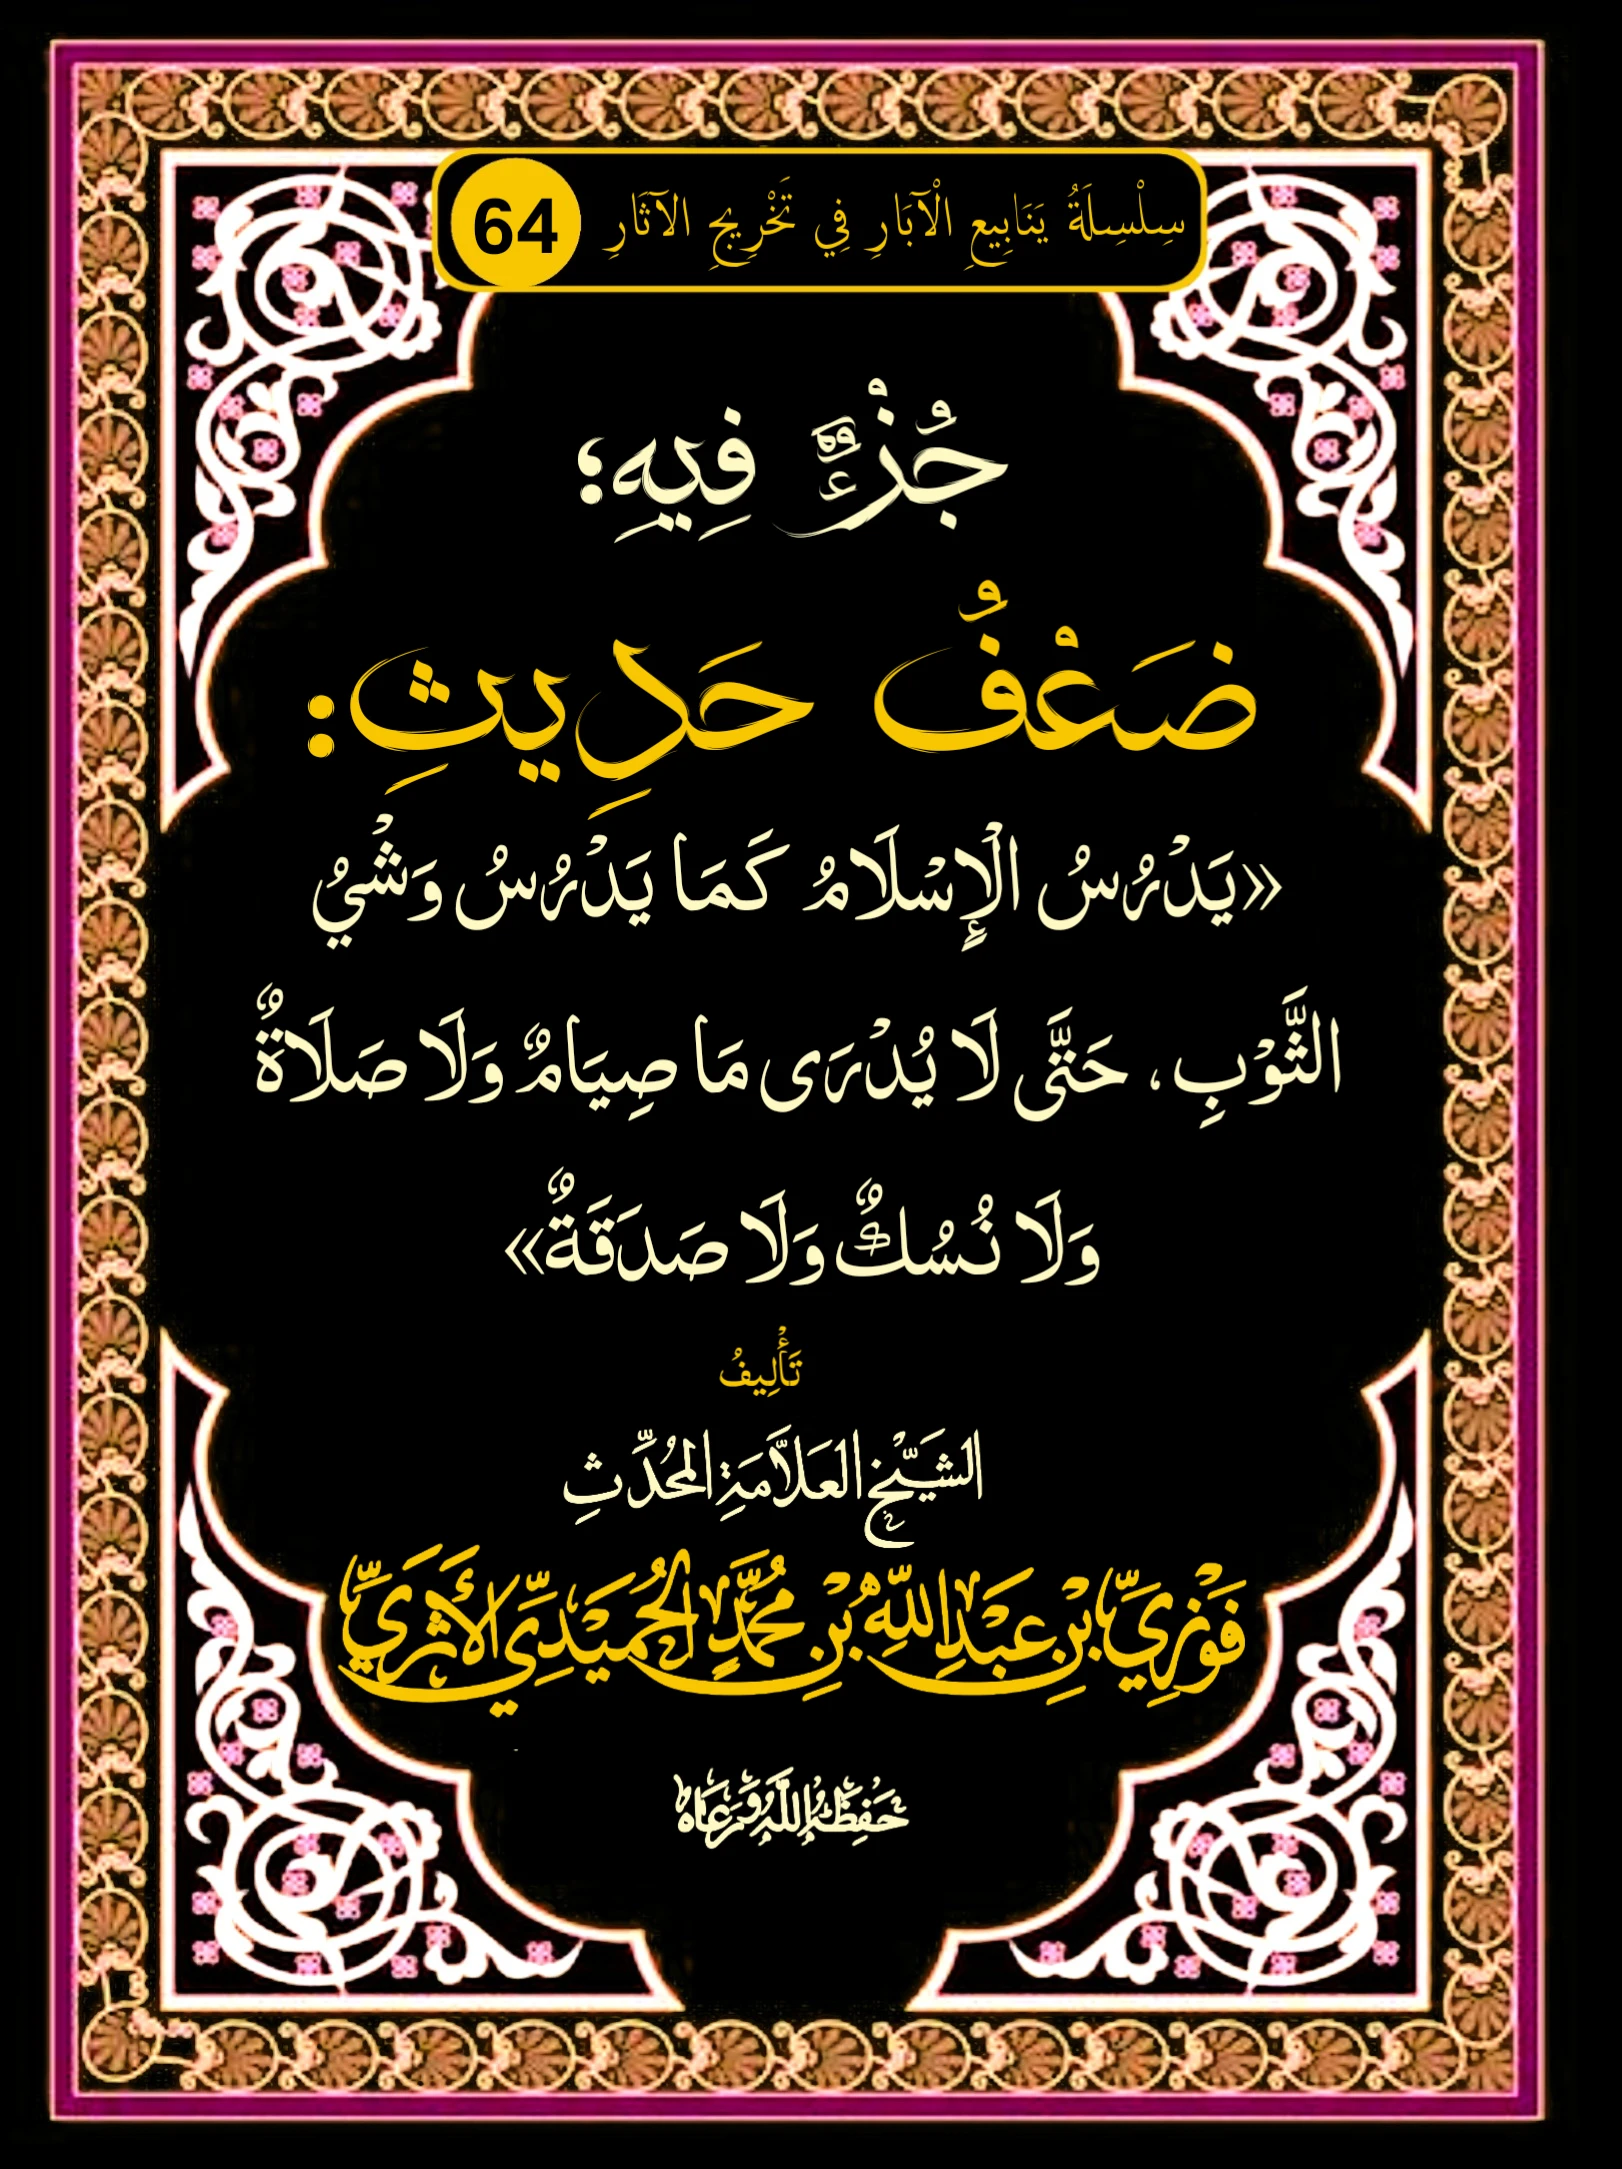 سِلْسِلَةُ يَنَابِيعِ الْآبَارِ فِي تَخْرِيجِ الآثَارِ 64
جُزْءٌ فِيهِ؛
ضَعْفُ حَدِيثِ:
«يَدْرُسُ الْإِسْلَامُ كَمَا يَدْرُسُ وَشْيُ
الثَّوْبِ، حَتَّى لَا يُدْرَى مَا صِيَامٌ وَلَا صَلَاةٌ
وَلَا نُسُكٌ وَلَا صَدَقَةٌ»
تَأْلِيفُ
الشَّيْخِ العَلاَّمَةِ المُحَدِّثِ
فَوْزِيِّ بْنِ عَبْدِ اللَّهِ بْنِ مُحَمَّدٍ الحُمَيْدِيِّ الأَثَرِيِّ
حَفِظَهُ اللَّهُ وَرَعَاهُ